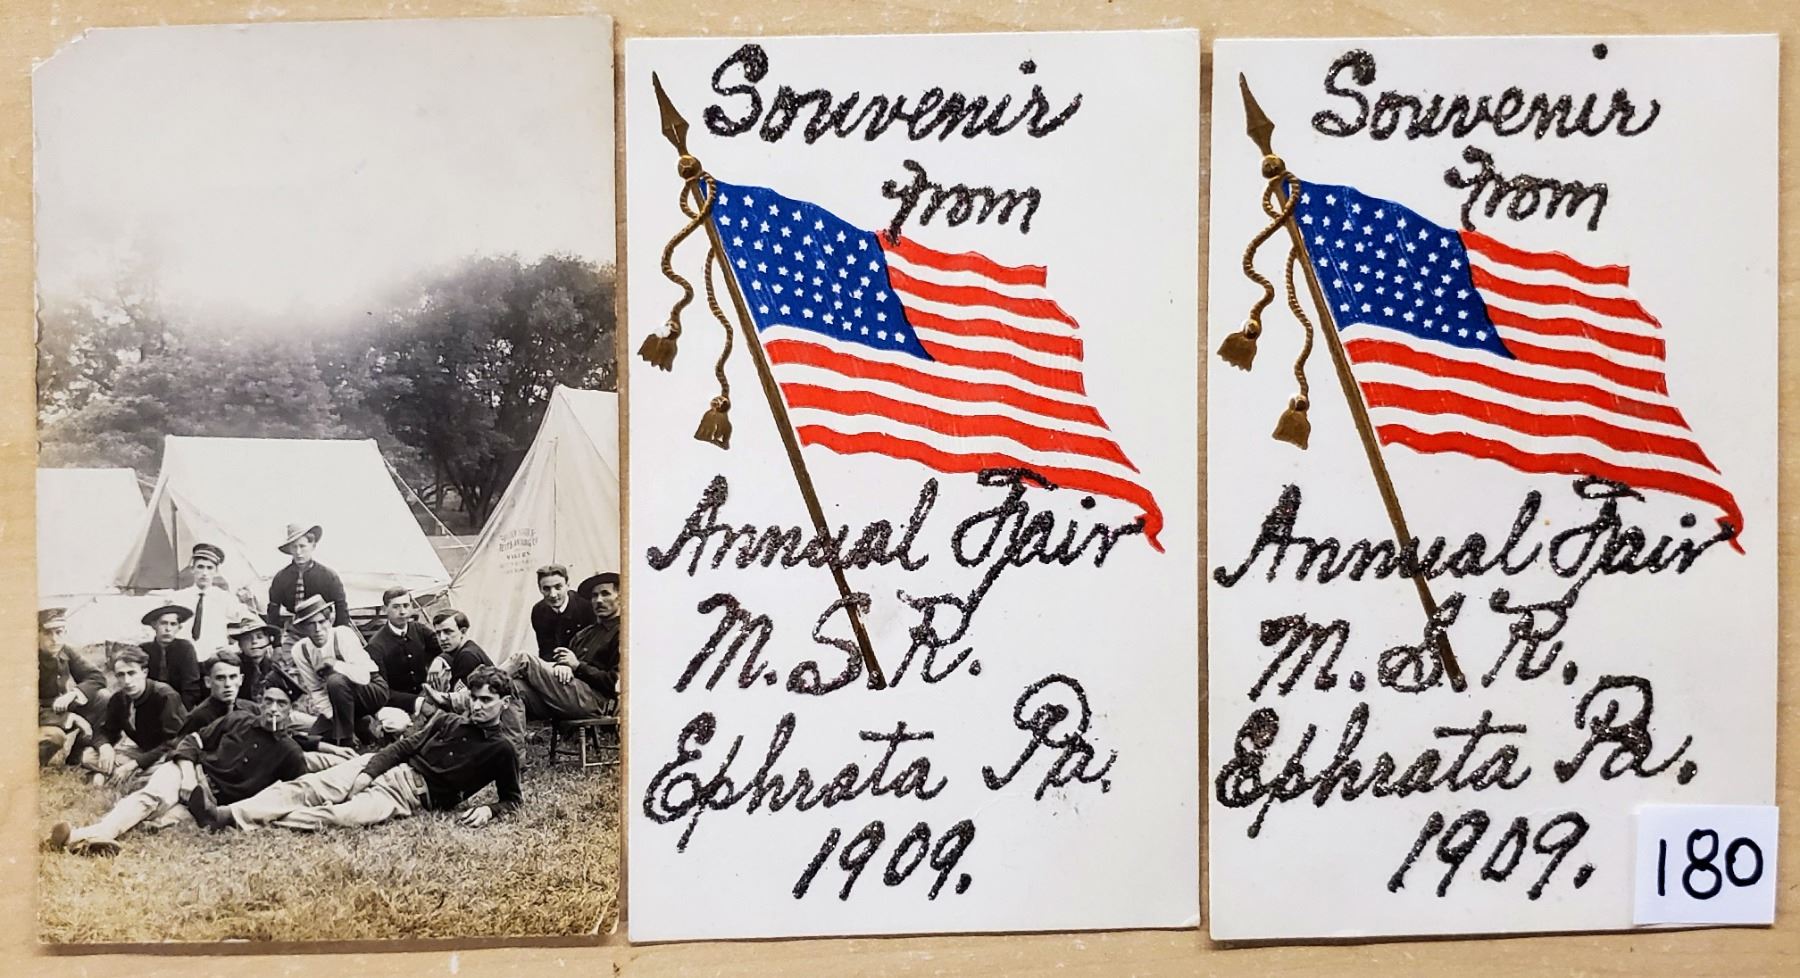 Souvenir
from
Annual Fair
M. S. R.
Ephrata Pa.
1909.
Souvenir
from
Annual Fair
M. S. R.
Ephrata Pa.
1909.
180